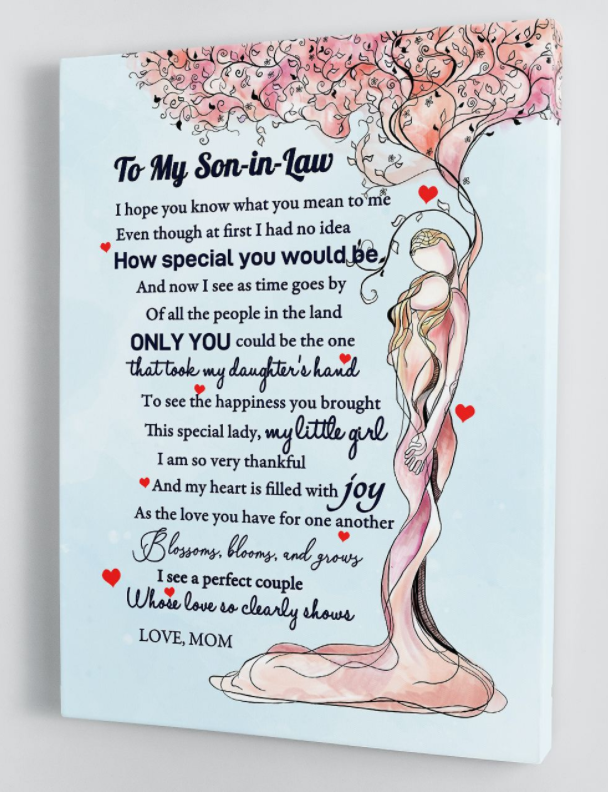 To My Son-in-Law
I hope you know what you mean to me
Even though at first I had no idea
How special you would be,
And now I see as time goes by
Of all the people in the land
ONLY YOU could be the one
that took my daughter's hand
To see the happiness you brought
This special lady, my little girl
I am so very thankful
And my heart is filled with joy
As the love you have for one another
Blossoms, blooms, and grows
I see a perfect couple
Whose love so clearly shows
LOVE, MOM